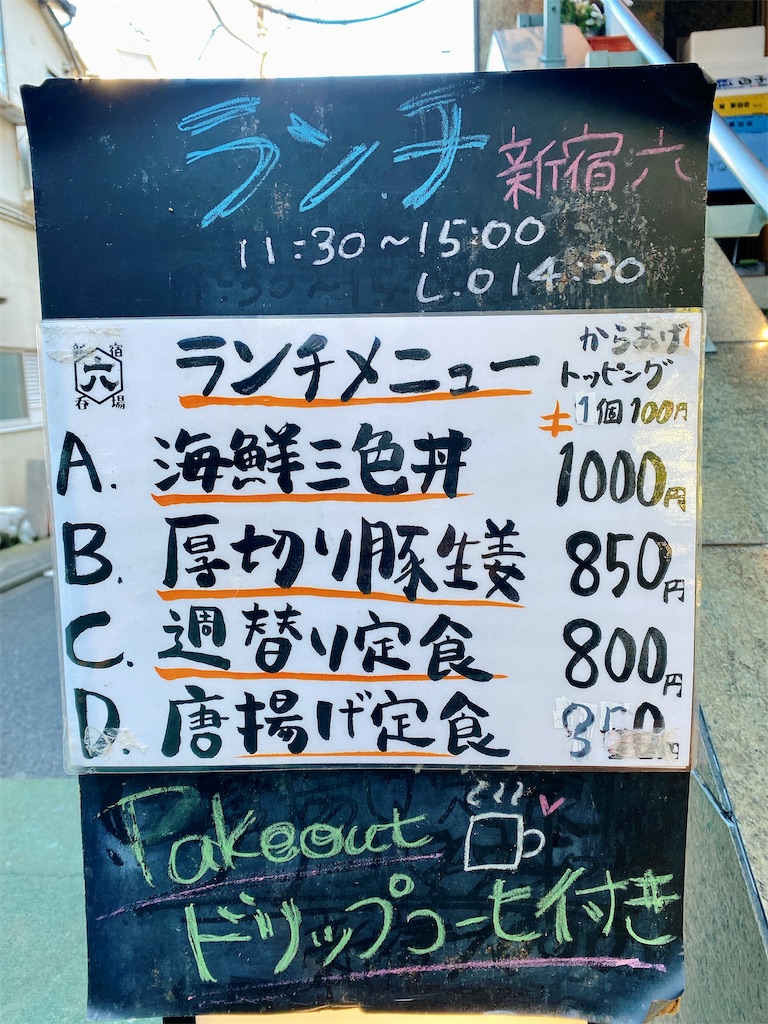 ランチ 新宿六
11:30~15:00
L.O 14:30
新宿
六
呑場
ランチメニュー
からあげ
トッピング
1個100円
A. 海鮮三色丼 1000円
B. 厚切り豚生姜 850円
C. 週替り定食 800円
D. 唐揚げ定食 850円
Takeout
ドリップコーヒー付き